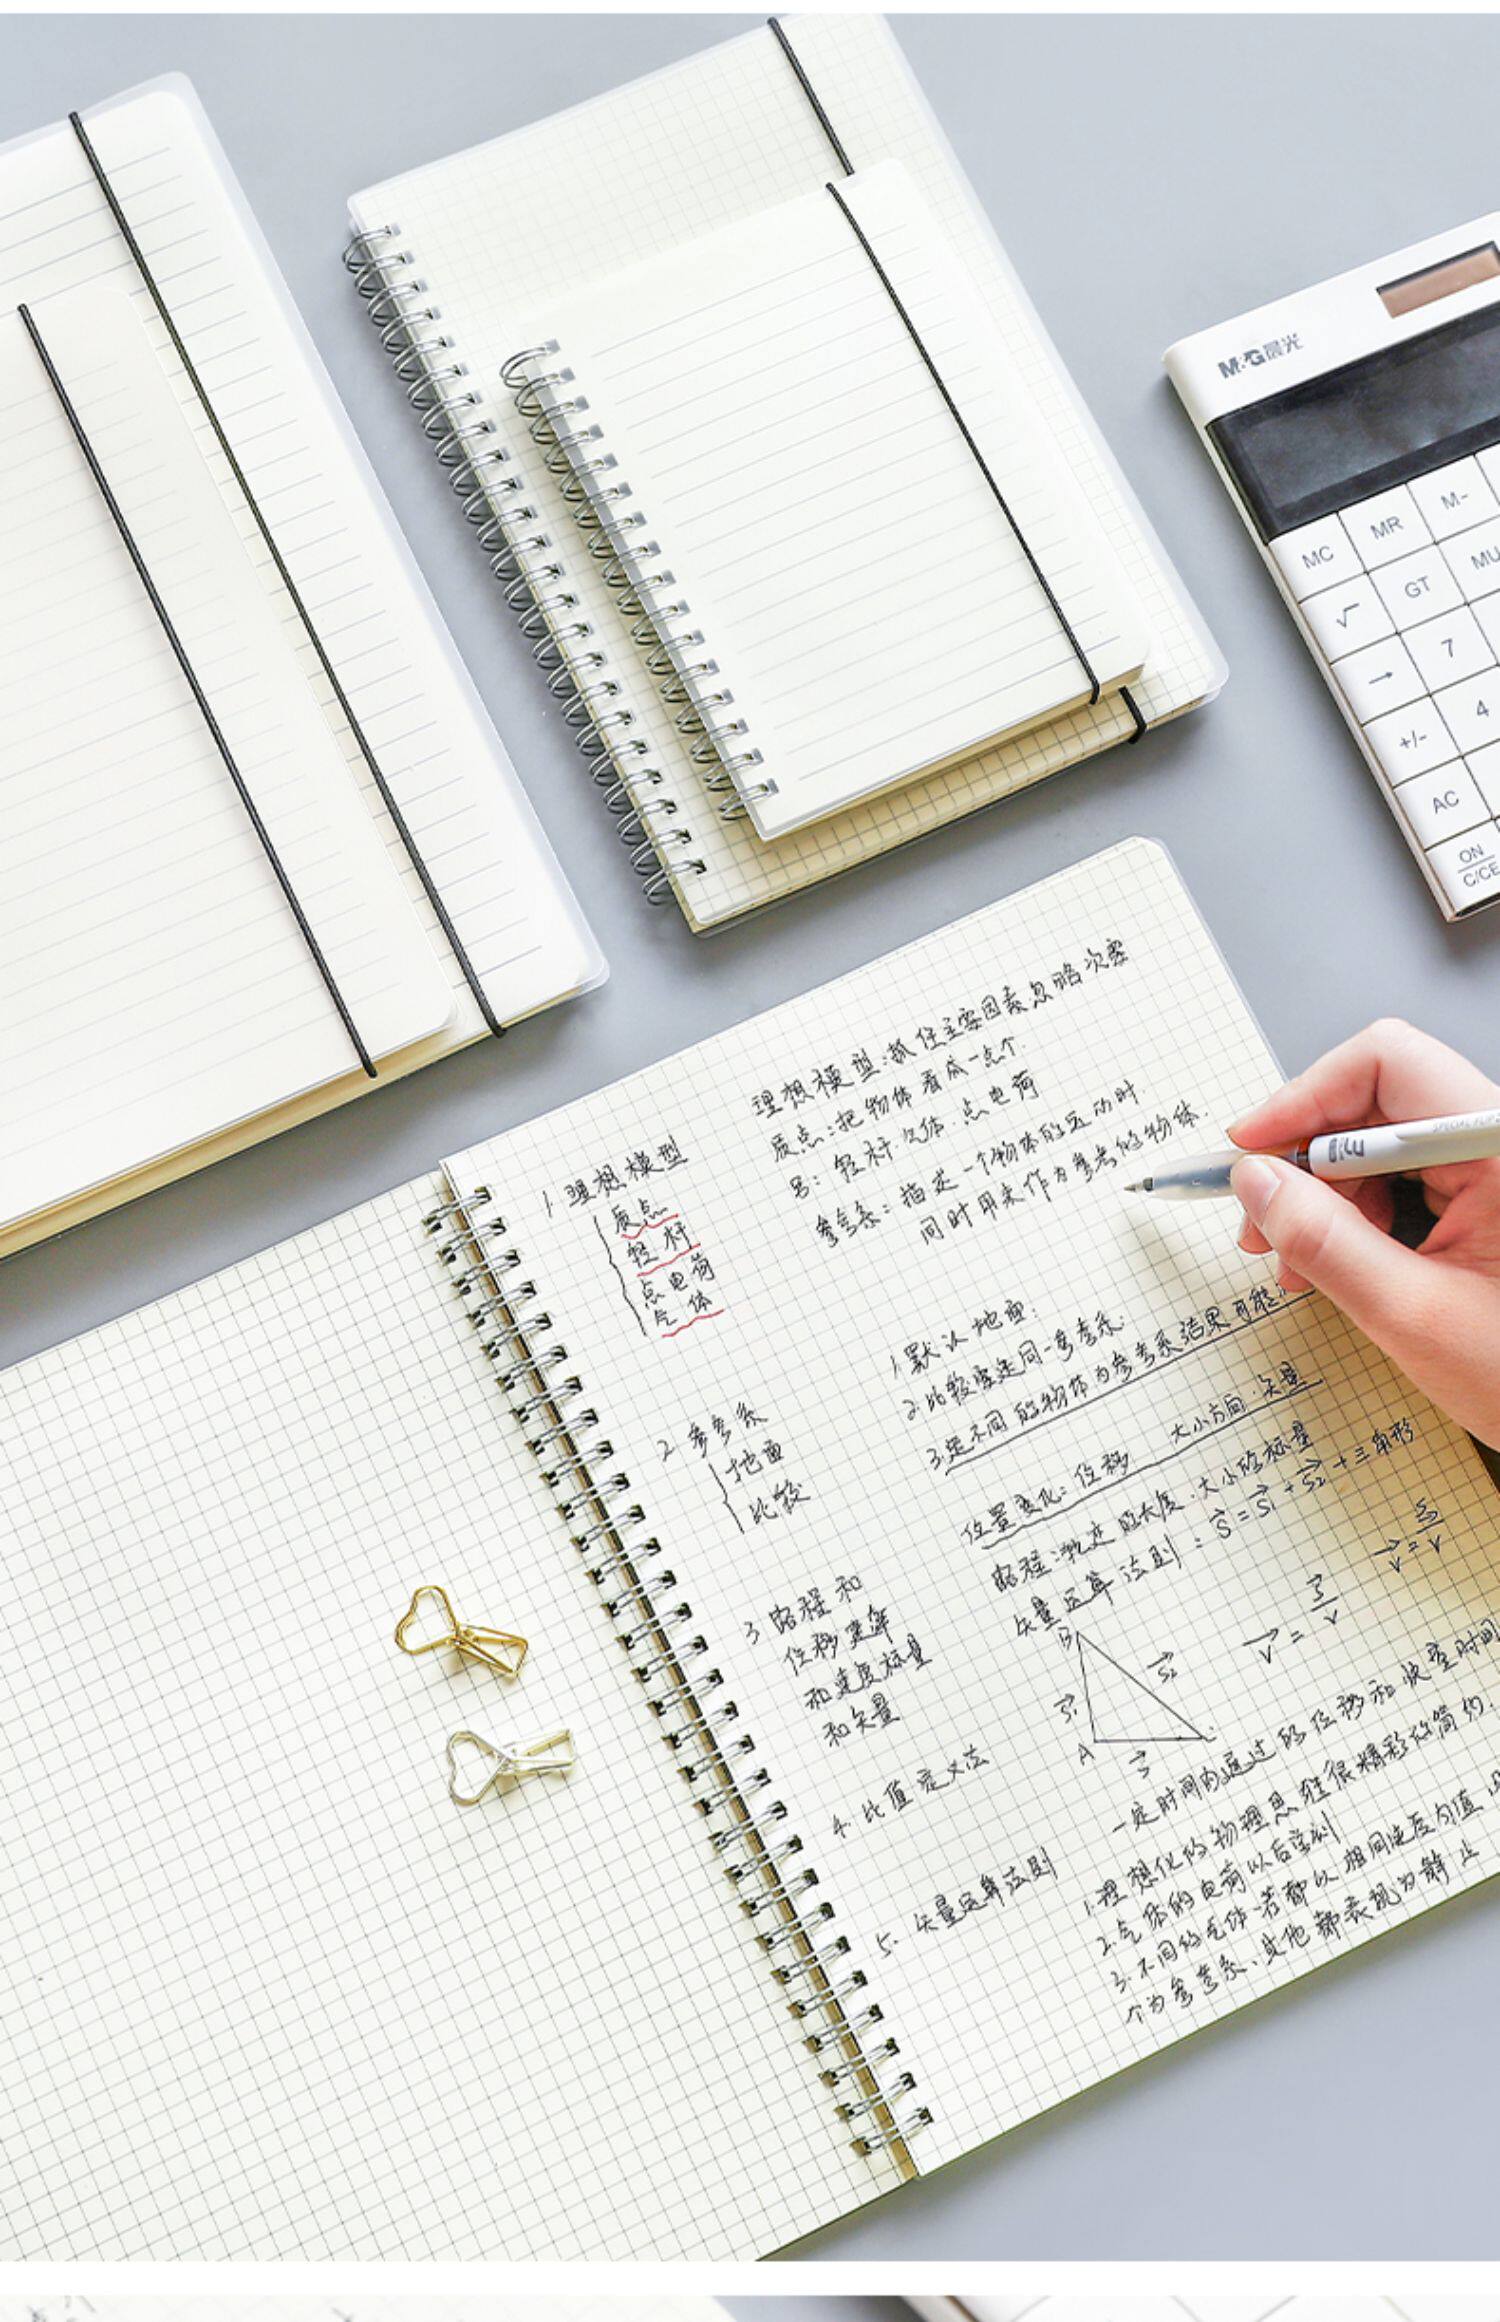 M&G晨光
MC
MR
M-
MU
√
GT
→
7
+/-
4
AC
ON
C/CE
理想模型:抓住主要因素忽略次要
质点:把物体看成一点个.
轻杆.气体.点电荷
参考系:描述一个物体的运动时
同时用来作为参考的物体.
1 理想模型
质点
轻杆
点电荷
气体
1.默认地面:
2.比较要选同一参考系.
3.选不同的物体为参考系结果可能
2 参考系
地面
比较
位置变化:位移 大小方向.矢量
路程:轨迹的长度.大小的标量
矢量运算法则: S=S1+S2+三角形
3 路程和
位移速率
和速度标量
和矢量
B
S1
S2
A
S
V=S/V
V=S/V
4.比值定义法
一定时间内通过的位移和快慢时间
5.矢量运算法则
1.理想化的物理思维很精彩的简约.
2.气体的电荷以后学到
3.不同的气体.若都以相同速度向值
个为参考系、其他都表现为静止